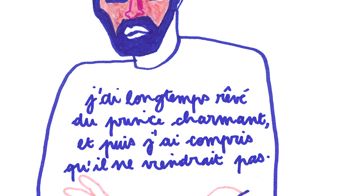 j'ai longtemps rêvé
du prince charmant,
et puis j'ai compris
qu'il ne viendrait pas.